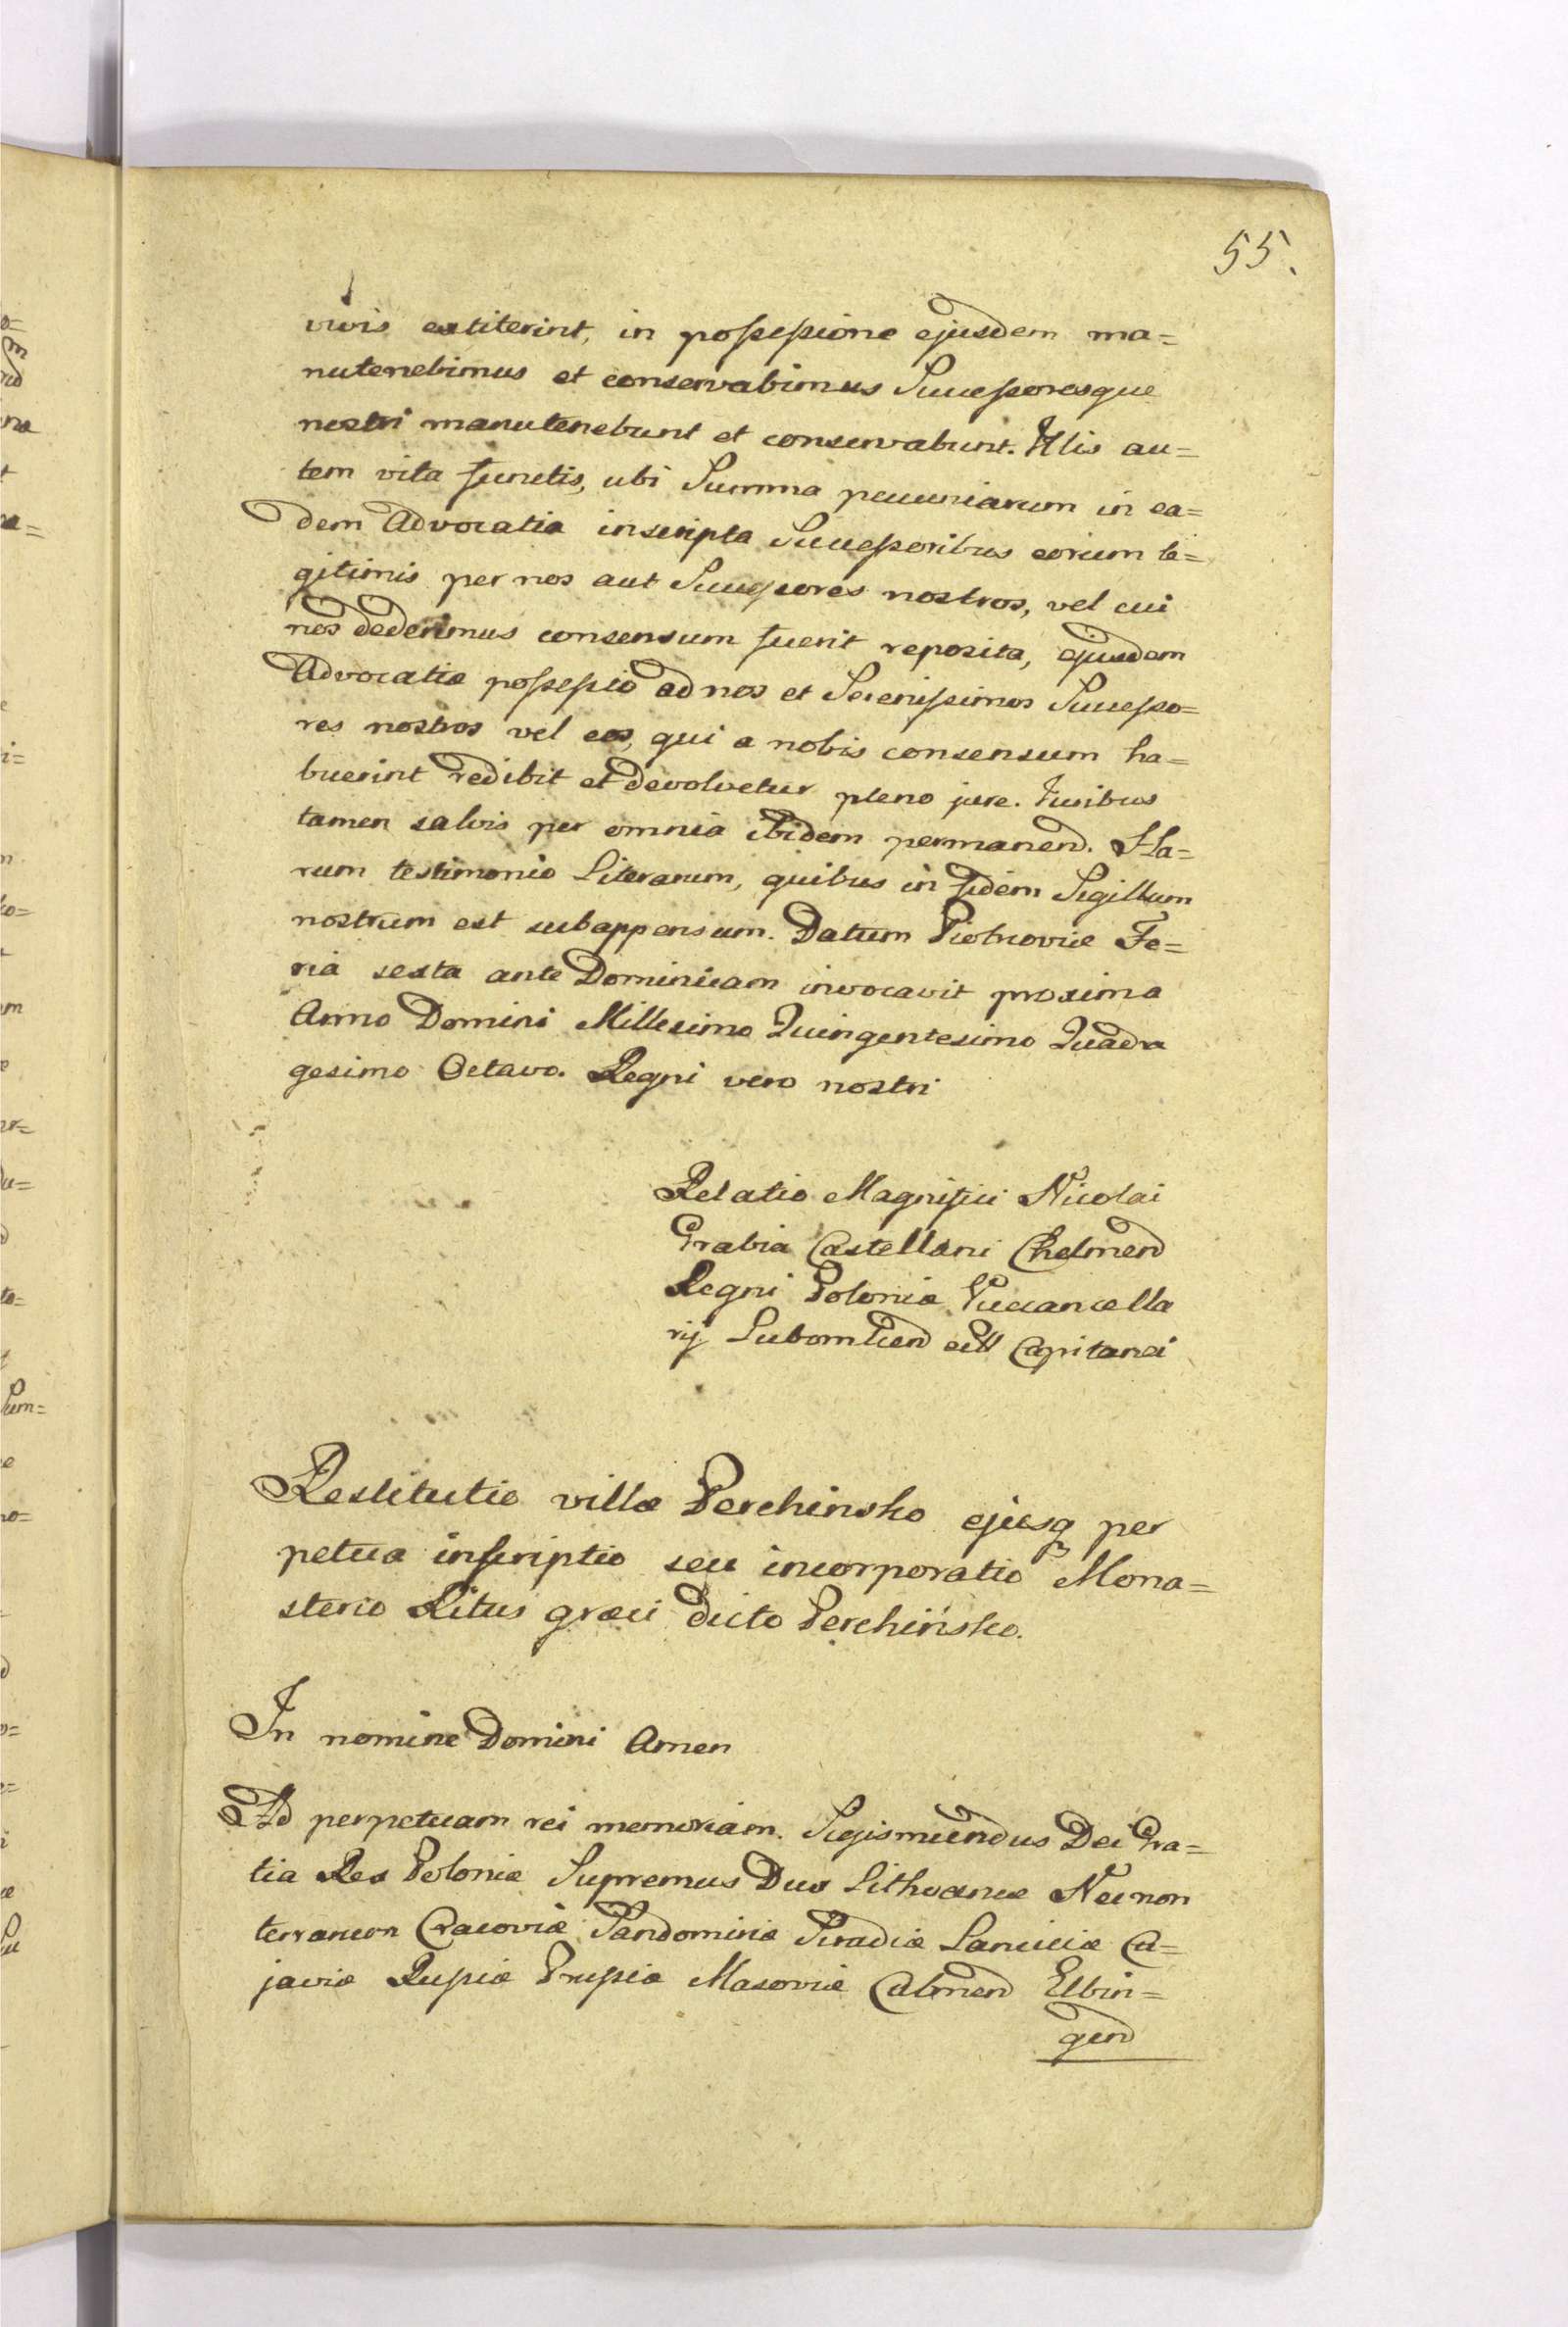 55.
vivis extiterint, in possessione ejusdem ma=
nutenebimus et conservabimus Successoresque
nostri manutenebunt et conservabunt. Illis au=
tem vita functis, ubi Summa pecuniarum in ea=
dem Advocatia inscripta Successoribus eorum le=
gitimis per nos aut Successores nostros, vel cui
nos dederimus consensum fuerit reposita, ejusdem
Advocatiæ possessio ad nos et Serenissimos Successo=
res nostros vel eos, qui a nobis consensum ha=
buerint redibit et devolvetur pleno jure. Juribus
tamen salvis per omnia ibidem permanend. Ha=
rum testimonio Literarum, quibus in fidem Sigillum
nostrum est subappensum. Datum Piotrcoviæ Fe=
ria sexta ante Dominicam invocavit proxima
Anno Domini Millesimo Quingentesimo Quadra
gesimo Octavo. Regni vero nostri
Relatio Magnifici Nicolai
Grabia Castellani Chelmen
Regni Poloniæ Vicecancella
rij Lubomlien ett Capitanei
Restitutio villæ Perehinsko ejusq per
petua inscriptio seu incorporatio Mona=
sterio Ritus græci dicto Perehinsko.
In nomine Domini Amen
Ad perpetuam rei memoriam. Sigismundus Dei Gra=
tia Rex Poloniæ Supremus Dux Lithvaniæ Necnon
terrarum Cracoviæ Sandomiriæ Siradiæ Lanciciæ Cu=
javiæ Russiæ Prussiæ Masoviæ Culmen Elbin=
gen